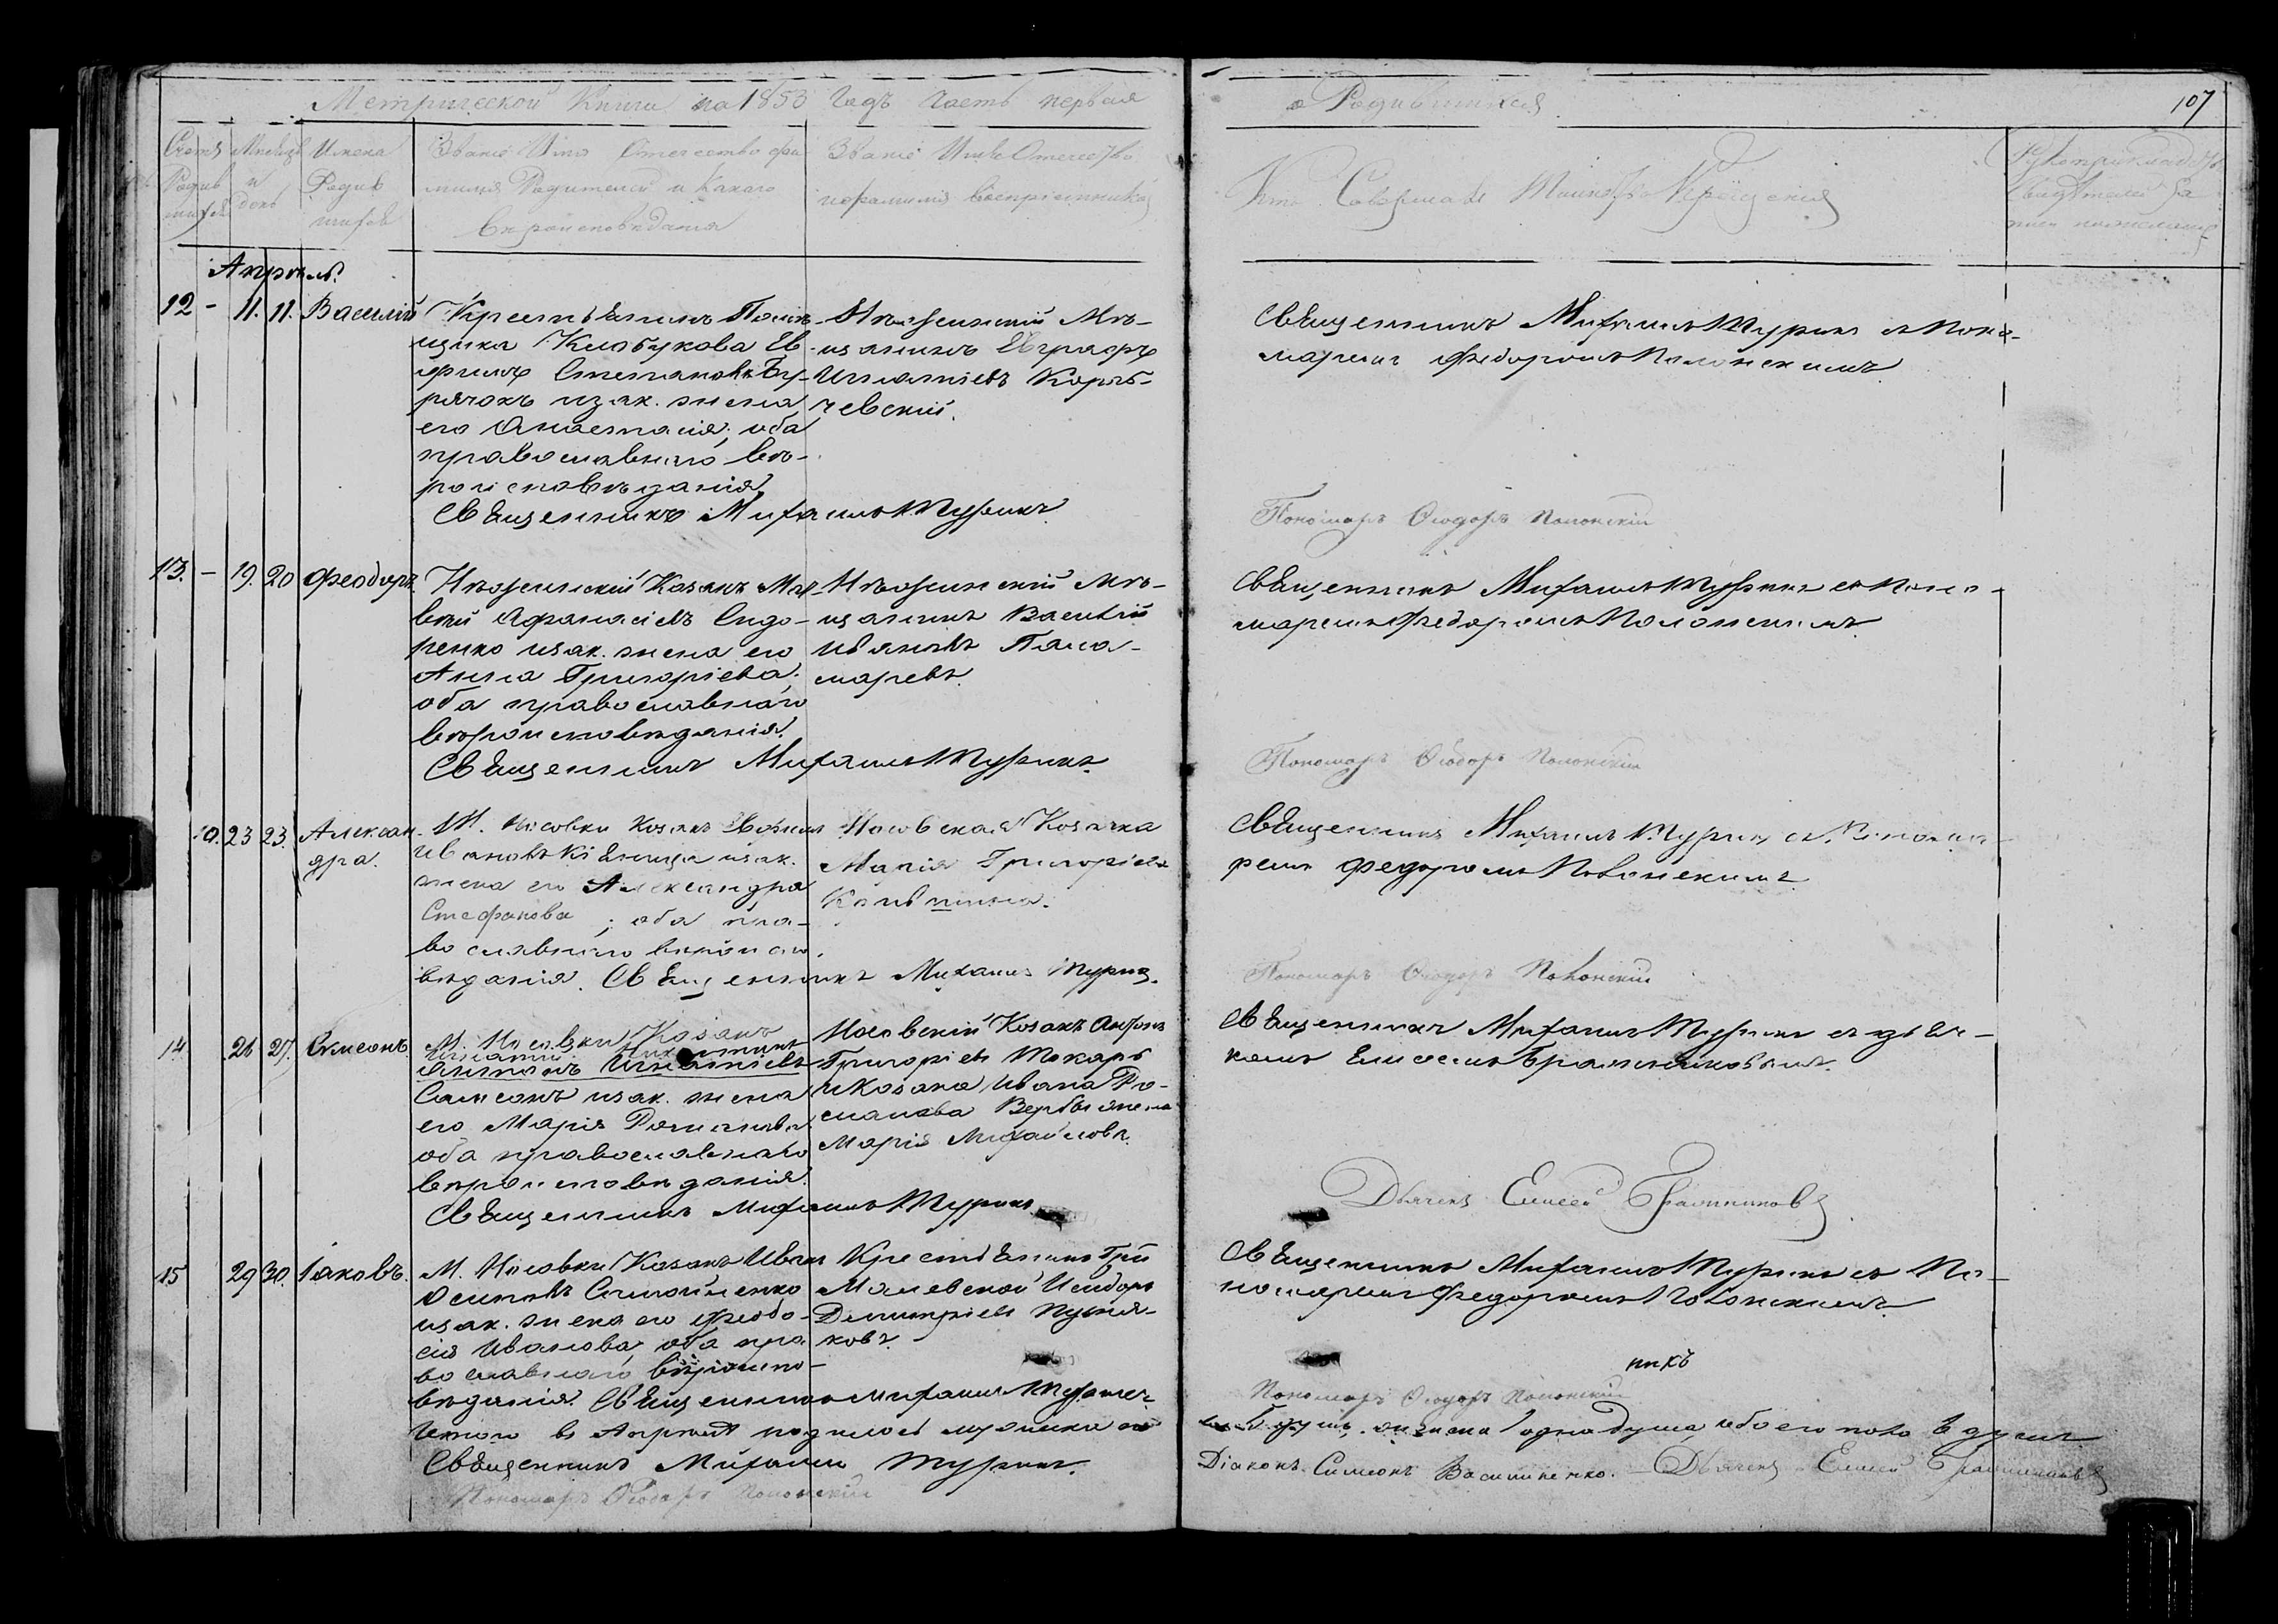 Метрической Книги на 1853 Годъ Часть первая
о Родившихся
107
Счетъ Родившихся
Мѣсяцъ и день
Имена Родившихся
Званіе Имя Отечество фамилія Родителей и Какого Вѣроисповѣданія
Званіе Имя Отечество и фамилія Воспріемниковъ
Кто Совершалъ Таинство Крещенія
Рукоприкладство свидѣтелей за
Апрѣль.
12 - 11. 11. Василій
Крестьянинъ Помѣ-
щика Клобукова Ев-
фимъ Стефановъ Бу-
рячокъ и зак. жена
его Анастасія; оба
православнаго вѣ-
роисповѣданія
Священникъ Михаилъ Туринъ
Нѣжинскій Мѣ-
щанинъ Евграфъ
Игнатіевъ Корб-
чевскій.
Священникъ Михаилъ Туринъ с Поно-
маремъ Федоромъ Полонскимъ
Пономарь Ѳеодоръ Полонскій
13. - 19. 20 Феодоръ.
Нѣжинскій Козакъ Мат-
вей Афанасіевъ Сидо-
ренко и зак. жена его
Анна Григоріева;
оба православнаго
вѣроисповѣданія.
Священникъ Михаилъ Туринъ
Нѣжинскій Мѣ-
щанинъ Василій
Ивановъ Пана-
маревъ.
Священникъ Михаилъ Туринъ с Поно-
маремъ Федоромъ Полонскимъ
Пономарь Ѳеодоръ Полонскій
10. 23 23. Алексан-
дра.
М. Носовки Козакъ
Ивановъ и зак.
жена его Александра
Стефанова; оба пра-
вославнаго вѣроиспо-
вѣданія. Священникъ Михаилъ Туринъ.
Носовская Козачка
Марія Григоріева
Священникъ Михаилъ Туринъ с Понома-
ремъ Федоромъ Полонскимъ
Пономарь Ѳеодоръ Полонскій
14. 26 27. Симеонъ.
М. Носовки Козакъ
Игнатіевъ
Самсонъ и зак. жена
его Марія
оба православнаго
вѣроисповѣданія.
Священникъ Михаилъ Туринъ
Носовскій Козакъ
Григоріевъ Токарь
и Козака Ивана Ро-
манова Вербы жена
Марія Михайлова.
Священникъ Михаилъ Туринъ съ дья-
комъ Елисеемъ
Дьячекъ Елисей
15 29 30. Іаковъ.
М. Носовки Козакъ Иванъ
Осиповъ Самойленко
и зак. жена его Феодо-
сія Иванова, оба пра-
вославнаго вѣроиспо-
вѣданія. Священникъ Михаилъ Туринъ
Крестьянинъ
Исидоръ
Димитріевъ
ковъ.
Священникъ Михаилъ Туринъ съ По-
номаремъ Федоромъ Полонскимъ
Пономарь Ѳеодоръ Полонскій
Итого въ Апрѣлѣ родилось мужеска по
женска 1 одна душа обоего пола
Священникъ Михаилъ Туринъ.
Діаконъ Симеонъ Василиненко. Дьячекъ Елисей
Пономарь Ѳеодоръ Полонскій